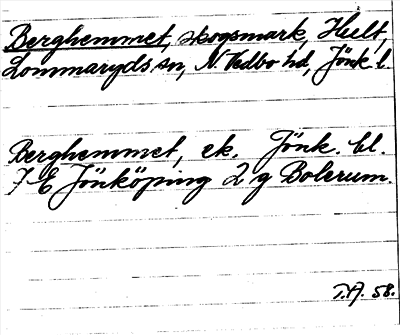 Berghemmet, skogsmark, Hult,
Lommaryds sn, N. Vedbo hd, Jönk l.
Berghemmet, ek. Jönk. bl.
7 E Jönköping 2 g Bolerum.
T.A. 58.